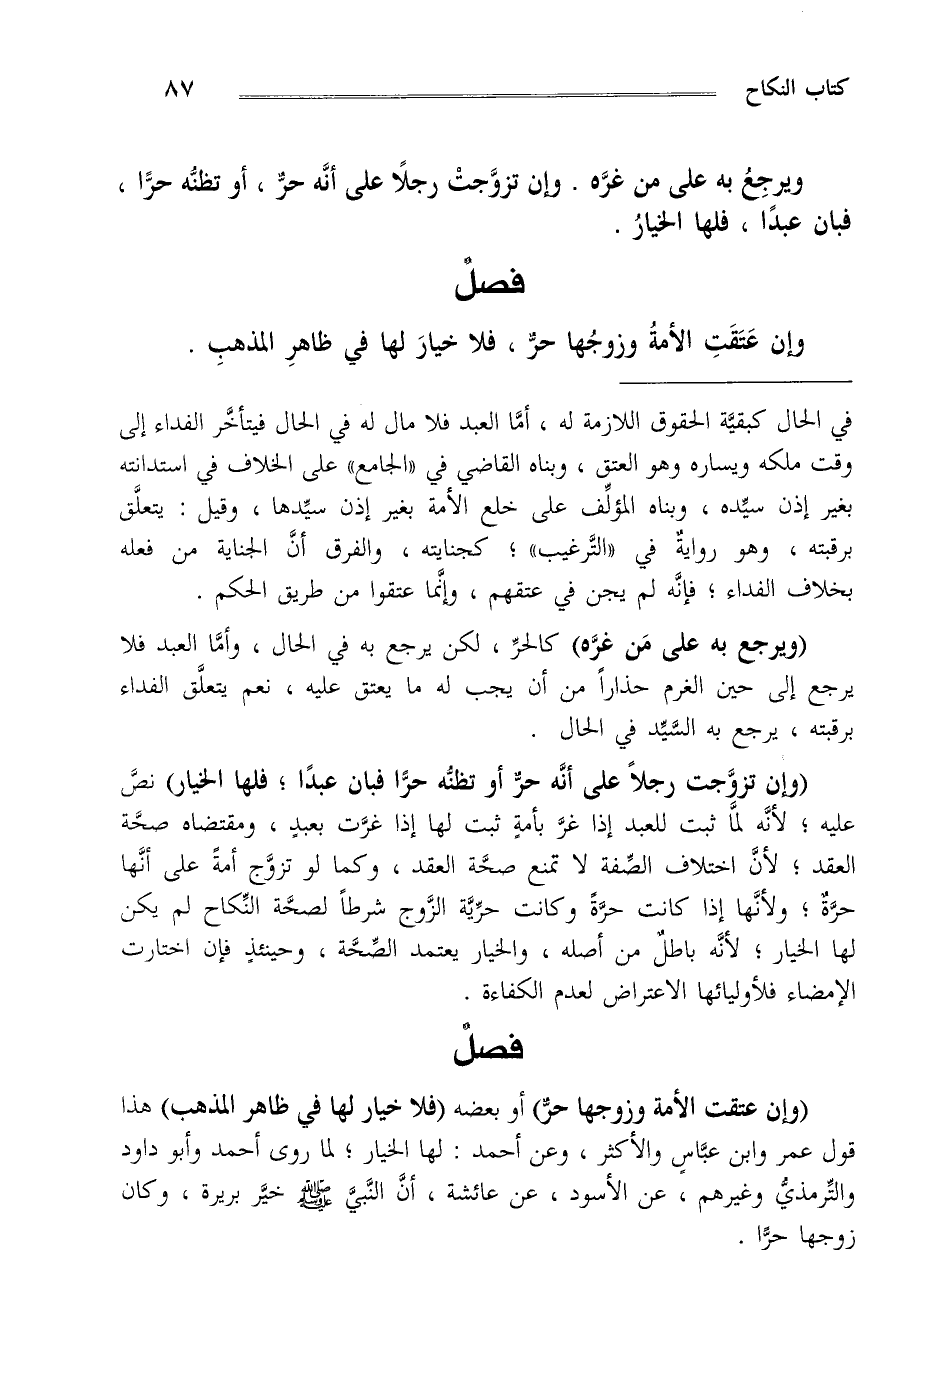 كتاب النكاح ٨٧
ويرجِعُ به على من غرَّه . وإن تزوَّجتْ رجلًا على أنَّه حرٌّ ، أو تظنُّه حرًّا ،
فبان عبدًا ، فلها الخيارُ .
فصلٌ
وإن عَتَقَتِ الأمةُ وزوجُها حرٌّ ، فلا خيارَ لها في ظاهرِ المذهبِ .
في الحال كبقيَّة الحقوق اللازمة له ، أمَّا العبد فلا مال له في الحال فيتأخَّر الفداء إلى
وقت ملكه ويساره وهو العتق ، وبناه القاضي في «الجامع» على الخلاف في استدانته
بغير إذن سيِّده ، وبناه المؤلِّف على خلع الأمة بغير إذن سيِّدها ، وقيل : يتعلَّق
برقبته ، وهو روايةٌ في «التَّرغيب» ؛ كجنايته ، والفرق أنَّ الجناية من فعله
بخلاف الفداء ؛ فإنَّه لم يجن في عتقهم ، وإنَّما عتقوا من طريق الحكم .
(ويرجع به على مَن غرَّه) كالحرِّ ، لكن يرجع به في الحال ، وأمَّا العبد فلا
يرجع إلى حين الغرم حذاراً من أن يجب له ما يعتق عليه ، نعم يتعلَّق الفداء
برقبته ، يرجع به السَّيِّد في الحال .
(وإن تزوَّجت رجلاً على أنَّه حرٌّ أو تظنُّه حرًّا فبان عبدًا ؛ فلها الخيار) نصَّ
عليه ؛ لأنَّه لمَّا ثبت للعبد إذا غرَّ بأمةٍ ثبت لها إذا غرَّت بعبدٍ ، ومقتضاه صحَّة
العقد ؛ لأنَّ اختلاف الصِّفة لا تمنع صحَّة العقد ، وكما لو تزوَّج أمةً على أنَّها
حرَّةٌ ؛ ولأنَّها إذا كانت حرَّةً وكانت حرِّيَّة الزَّوج شرطاً لصحَّة النِّكاح لم يكن
لها الخيار ؛ لأنَّه باطلٌ من أصله ، والخيار يعتمد الصِّحَّة ، وحينئذٍ فإن اختارت
الإمضاء فلأوليائها الاعتراض لعدم الكفاءة .
فصلٌ
(وإن عتقت الأمة وزوجها حرٌّ) أو بعضه (فلا خيار لها في ظاهر المذهب) هذا
قول عمر وابن عبَّاسٍ والأكثر ، وعن أحمد : لها الخيار ؛ لما روى أحمد وأبو داود
والتِّرمذيُّ وغيرهم ، عن الأسود ، عن عائشة ، أنَّ النَّبيَّ ﷺ خيَّر بريرة ، وكان
زوجها حرًّا .